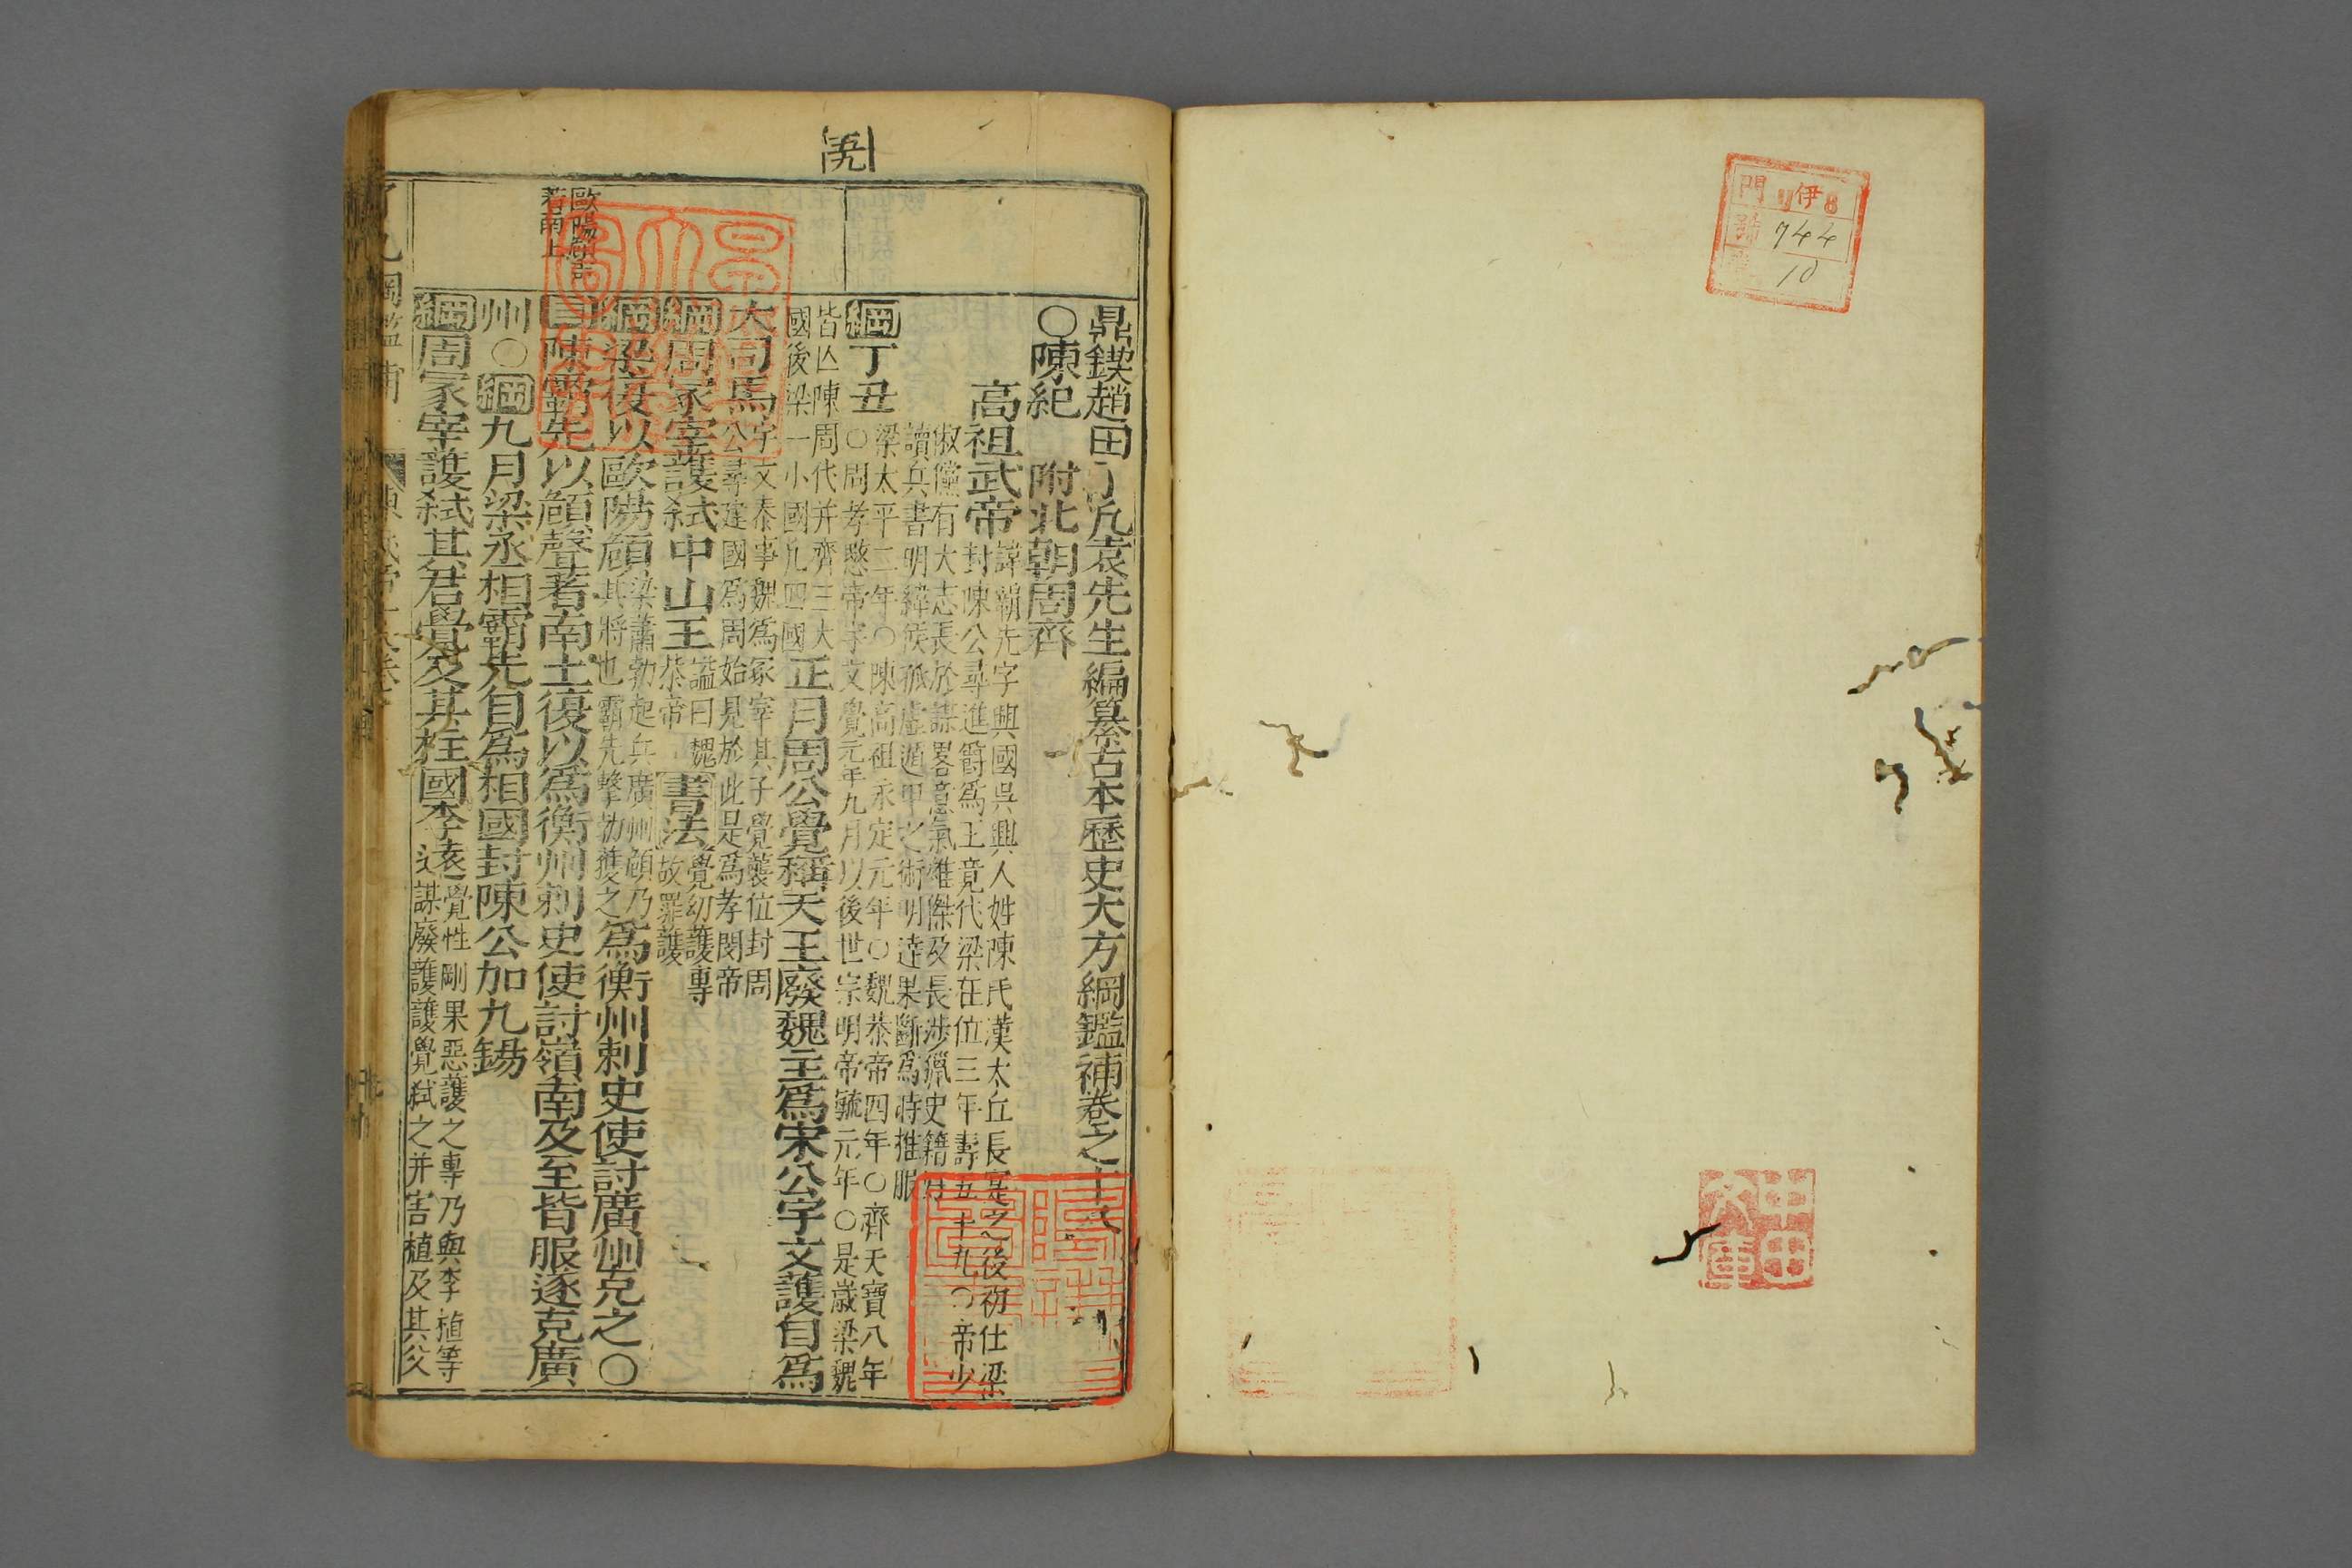 門 伊 8
號 744
10
鼎鍥趙田了凡袁先生編纂古本歷史大方綱鑑補卷之十六
○陳紀 附北朝周齊
高祖武帝
諱霸先字興國吳興人姓陳氏漢太丘長寔之後初仕梁
封陳公尋進爵為王竟代梁在位三年壽五十九○帝少
俶儻有大志長於謀畧意氣雄傑及長涉獵史籍好
讀兵書明緯候孤虛遁甲之術明達果斷為時推服
綱丁丑
梁太平二年○陳高祖永定元年○魏恭帝四年○齊天寶八年
○周孝愍帝宇文覺元年九月以後世宗明帝毓元年○是歲梁魏
皆亾陳周代并齊三大
國後梁一小國凡四國
正月周公覺稱天王廢魏主為宋公宇文護自為
大司馬
宇文泰事魏為冢宰其子覺襲位封周
公尋建國為周始見於此是為孝閔帝
綱周冢宰護弒中山王
謚曰魏
恭帝
書法
覺幼護專
故罪護
綱梁復以歐陽頠
梁蕭勃起兵廣州頠乃
其將也霸先擊勃獲之
為衡州刺史使討廣州克之○
目陳霸先以頠聲著南土復以為衡州刺史使討嶺南及至皆服遂克廣
州○綱九月梁丞相霸先自為相國封陳公加九錫
綱周冢宰護弒其君覺及其柱國李遠
覺性剛果惡護之專乃與李植等
謀廢護護覺弒之并害植及其父
歐陽頠聲
著南土